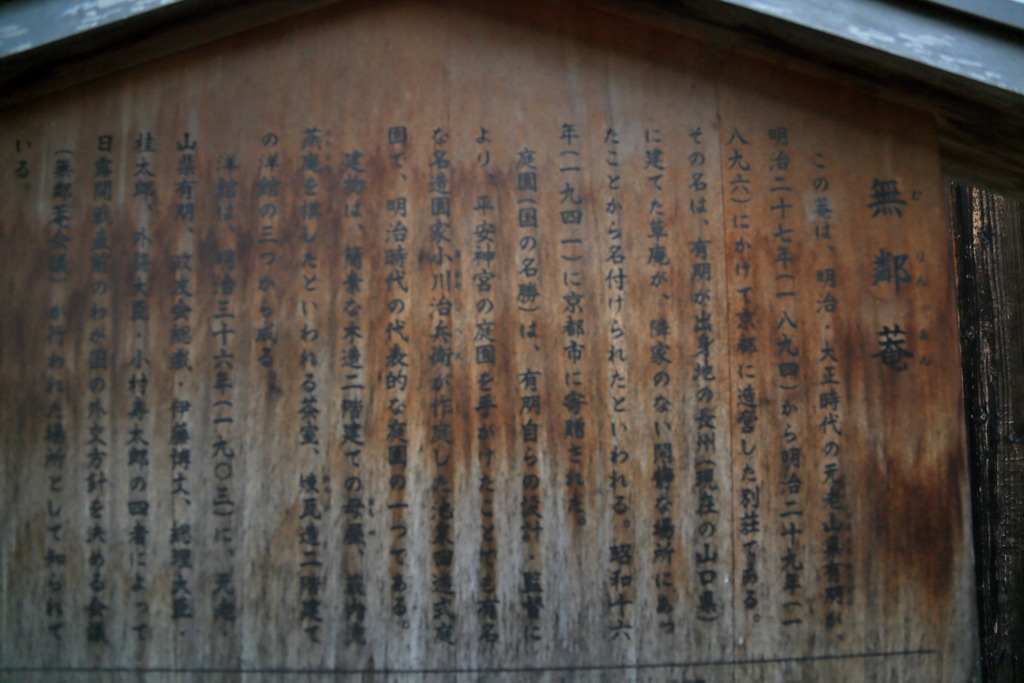 無鄰菴
むりんあん
この菴は、明治・大正時代の元老、山県有朋が、
明治二十七年(一八九四)から明治二十九年(一
八九六)にかけて京都に造営した別荘である。
その名は、有朋が出身地の長州(現在の山口県)
に建てた草庵が、隣家のない閑静な場所にあっ
たことから名付けられたといわれる。昭和十六
年(一九四一)に京都市に寄贈された。
庭園(国の名勝)は、有朋自らの設計・監督に
より、平安神宮の庭園を手がけたことでも有名
な名造園家小川治兵衛が作庭した池泉回遊式庭
園で、明治時代の代表的な庭園の一つである。
建物は、簡素な木造二階建ての母屋、薮内流
燕庵を模したといわれる茶室、煉瓦造二階建て
の洋館の三つから成る。
洋館は、明治三十六年(一九〇三)に、元老・
山県有朋、政友会総裁・伊藤博文、総理大臣・
桂太郎、外務大臣・小村寿太郎の四者によって
日露開戦直前のわが国の外交方針を決める会議
(無鄰菴会議)が行われた場所として知られて
いる。